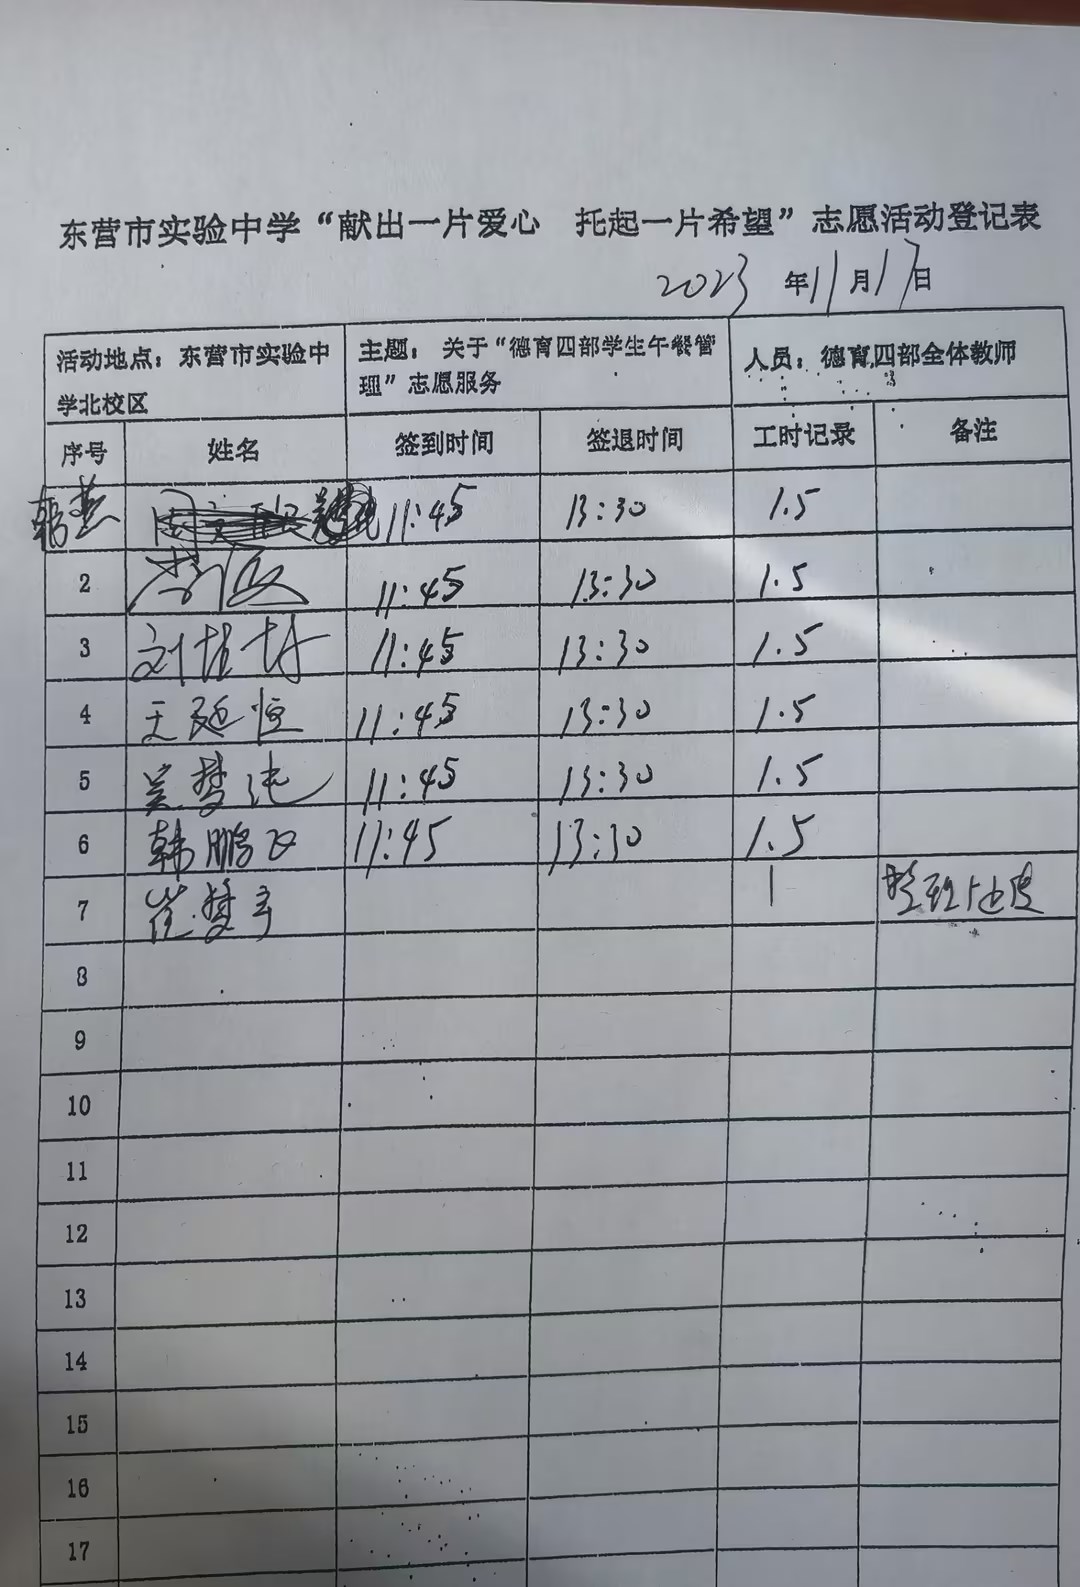 东营市实验中学“献出一片爱心 托起一片希望”志愿活动登记表
2023 年 11 月 17 日
活动地点：东营市实验中学北校区 主题：关于“德育四部学生午餐管理”志愿服务 人员：德育四部全体教师
序号 姓名 签到时间 签退时间 工时记录 备注
韩燕 11:45 13:30 1.5
2 11:45 13:30 1.5
3 刘 11:45 13:30 1.5
4 王延恒 11:45 13:30 1.5
5 吴梦 11:45 13:30 1.5
6 韩鹏飞 11:45 13:30 1.5
7 崔梦宇 1 整理
8
9
10
11
12
13
14
15
16
17